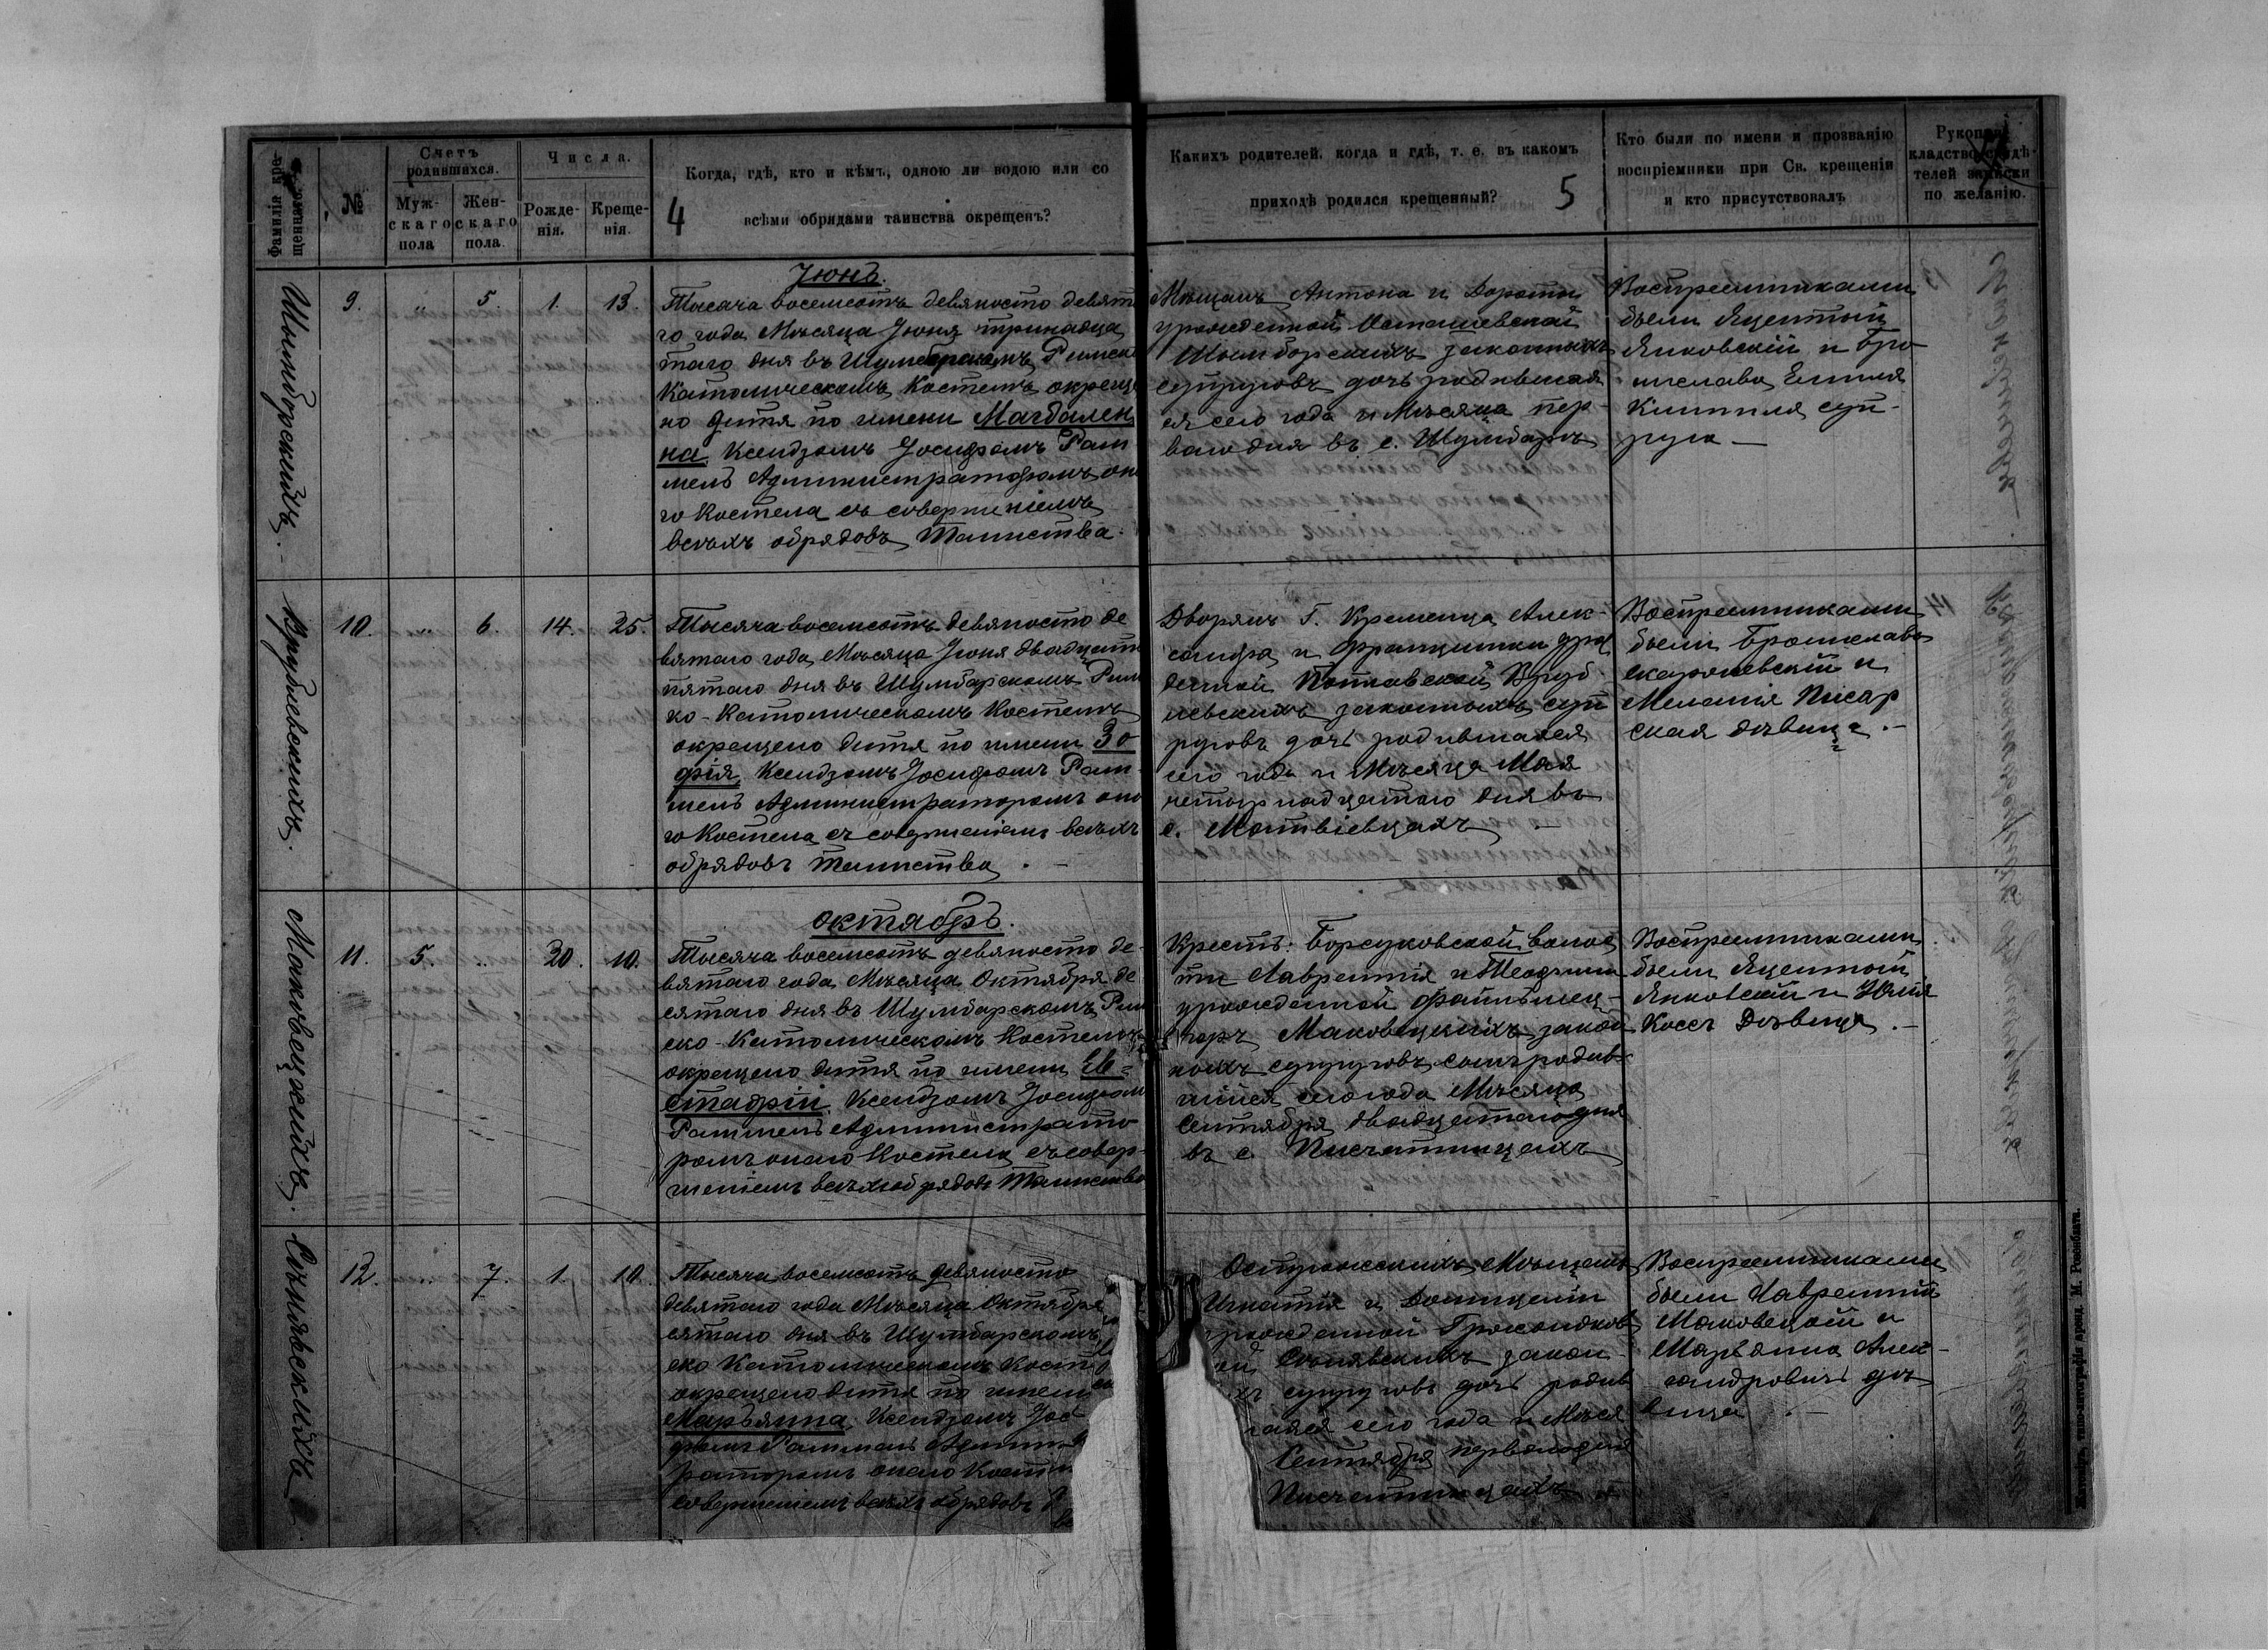 Фамилія кре-
щеннаго.
№
Счетъ
родившихся.
Муж-
скаго
пола
Жен-
скаго
пола.
Числа.
Рожде-
нія.
Креще-
нія.
Когда, гдѣ, кто и кѣмъ, одною ли водою или со
всѣми обрядами таинства окрещенъ?
4
Какихъ родителей, когда и гдѣ, т. е. въ какомъ
приходѣ родился крещенный?
5
Кто были по имени и прозванію
воспріемники при Св. крещеніи
и кто присутствовалъ
Рукопри-
кладство свидѣ-
телей записки
по желанію.
Шымборскихъ.
9.
"
5.
1.
13.
Іюнь.
Тысяча восемсотъ девяносто девята
го года Мѣсяца Іюня тринадца
таго дня въ Шумбарскомъ Римско
Католическомъ Костелѣ окреще
но дитя по имени Магдален
на Ксендзомъ Іосифомъ
Администраторомъ она
го Костела съ совершеніемъ
всѣхъ обрядовъ Таинства.
Мѣщанъ Антона и Дороты
урожденной
Шымборскихъ законныхъ
супруговъ дочь родившая
ся сего года и Мѣсяца пер-
ваго дня въ с. Шумбарѣ
Воспреемниками
были Яцентый
Янковскій и Бро
нислава
суп-
руга —
Врублевскихъ.
10.
"
6.
14.
25.
Тысяча восемсотъ девяносто де
вятаго года Мѣсяца Іюня двадцать
пятаго дня въ Шумбарскомъ Рим
ко-Католическомъ Костелѣ
окрещено дитя по имени Зо
фія Ксендзомъ Іосифомъ
Администраторомъ она
го Костела съ совершеніемъ всѣхъ
обрядовъ Таинства. —
Дворянъ Г. Кременца Алек-
сандра и Францишки урож
денной Врубл
евскихъ законныхъ суп
руговъ дочь родившаяся
сего года и Мѣсяца Мая
четырнадцатаго дня въ
с. Матвіевцахъ —
Воспреемниками
были Брониславъ
и
Меланія Писар
ская дѣвица. —
Маковецкихъ.
11.
5.
"
20.
10.
Октябрь.
Тысяча восемсотъ девяносто де-
вятаго года Мѣсяца Октября де
сятаго дня въ Шумбарскомъ Рим
ско-Католическомъ Костелѣ
окрещено дитя по имени Ев-
стафій Ксендзомъ Іосифом
Администрато
ромъ онаго Костела съ совер-
шеніемъ всѣхъ обрядовъ Таинства
Крестъ: Борсуковской волос
ти Лаврентія и
урожденной
Маковецкихъ закон
ныхъ супруговъ сынъ родив
шійся сего года Мѣсяца
Сентября двадцатаго дня
въ с.
Воспреемниками
были Яцентый
Янковскій и Юлія
Коссъ Дѣвица. —
12.
"
7.
1.
10.
Тысяча восемсотъ девяносто
девятаго года Мѣсяца Октября
сятаго дня въ Шумбарскомъ
ско Католическомъ Косте
окрещено дитя по имени
Марьянна Ксендзомъ Іос

раторомъ онаго Косте
совершеніемъ всѣхъ обрядовъ
Острожскихъ Мѣщанъ
Игнатія и Доминцеліи
рожденной
закон-
хъ супруговъ дочь родив
аяся сего года и Мѣся
Сентября перваго дня
Воспреемниками
были Лаврентій
Маковецкій и
Марьянна Алек-
сандровичъ дѣ
вица. —
Житомиръ, типо-литографія аренд. М. Розенблата.